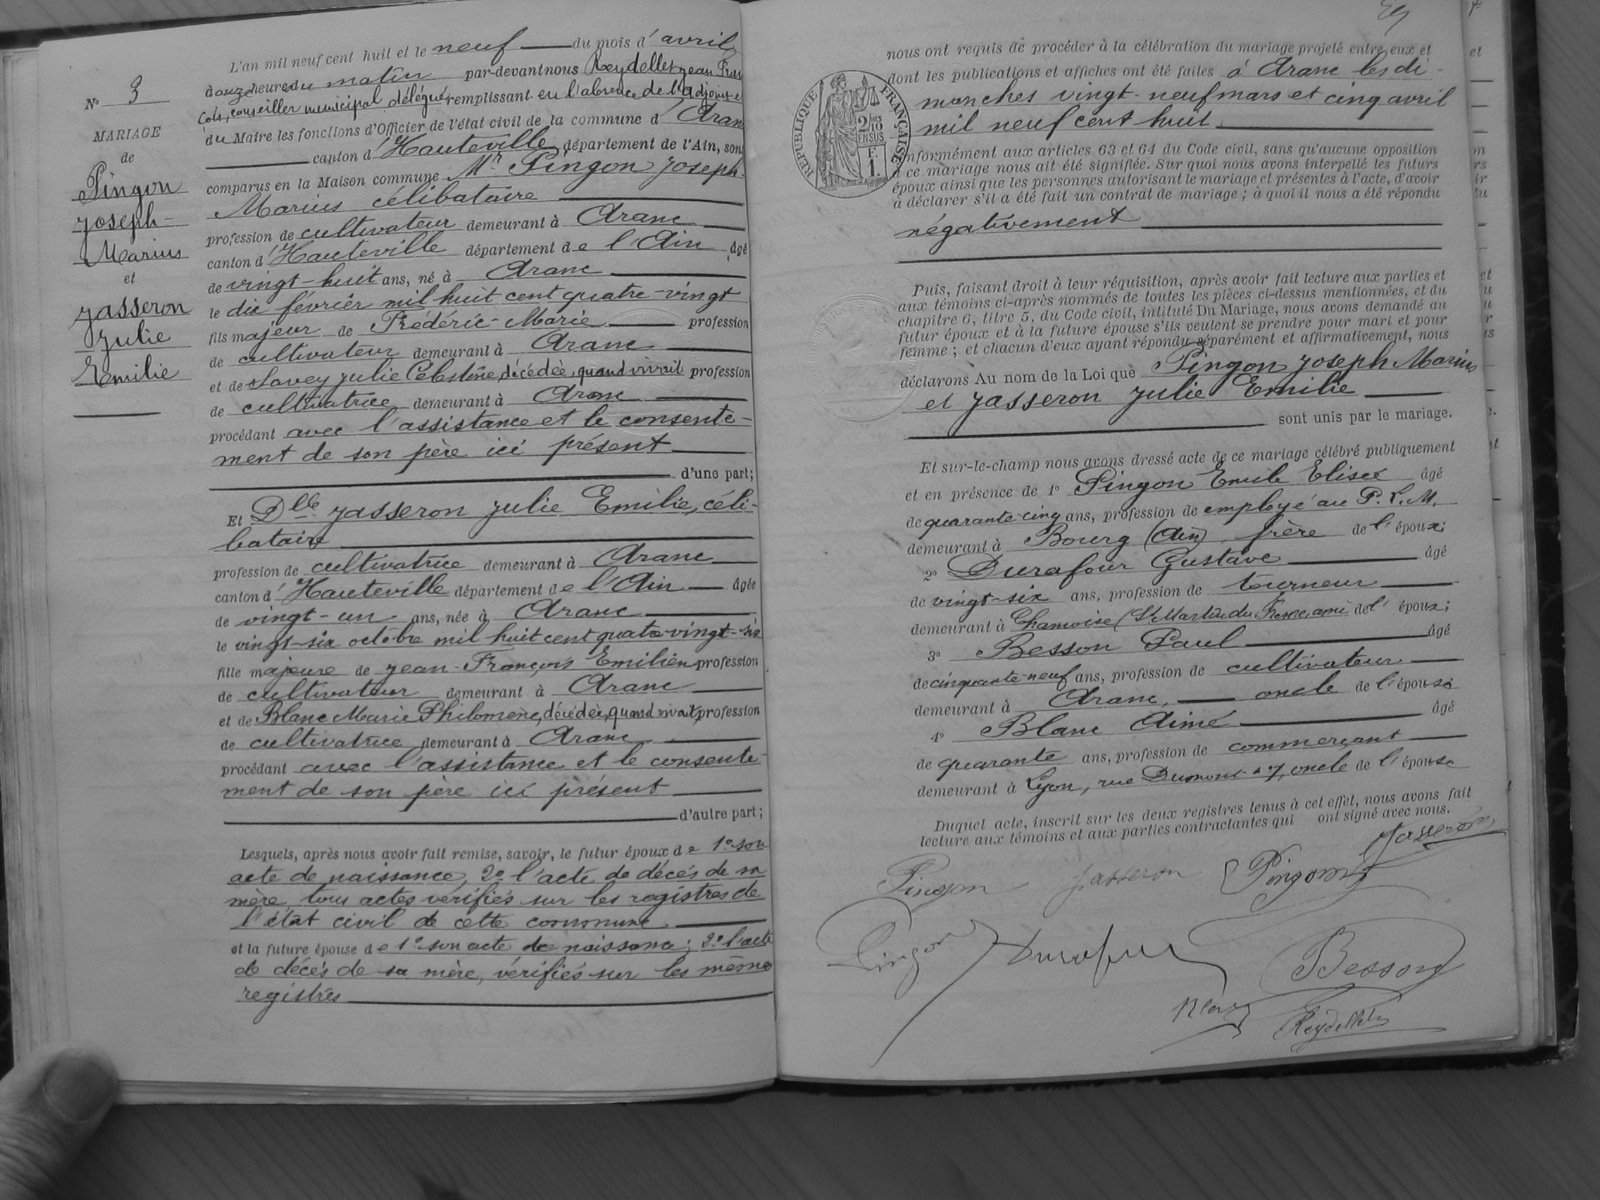 N° 3
MARIAGE
de
Pingon
Joseph-
Marius
et
Jasseron
Julie
Emilie
L'an mil neuf cent huit et le neuf du mois d'avril
à onze heures du matin par-devant nous Reydellet Jean Fran
çois, conseiller municipal délégué remplissant en l'absence de l'adjoint et
du Maire les fonctions d'Officier de l'état civil de la commune d'Aranc
canton d'Hauteville, département de l'Ain, sont
comparus en la Maison commune Mr Pingon Joseph-
Marius célibataire
profession de cultivateur demeurant à Aranc
canton d'Hauteville département de l'Ain âgé
de vingt-huit ans, né à Aranc
le dix février mil huit cent quatre-vingt
fils majeur de Frédéric-Marie profession
de cultivateur demeurant à Aranc
et de Savey Julie Célestine, décédée, quand vivait profession
de cultivatrice demeurant à Aranc
procédant avec l'assistance et le consente-
ment de son père ici présent
d'une part;
Et Dlle Jasseron Julie Emilie, céli-
bataire
profession de cultivatrice demeurant à Aranc
canton d'Hauteville département de l'Ain âgée
de vingt-un ans, née à Aranc
le vingt-six octobre mil huit cent quatre-vingt-six
fille majeure de Jean-François Emilien profession
de cultivateur demeurant à Aranc
et de Blanc Marie Philomène, décédée, quand vivait profession
de cultivatrice demeurant à Aranc
procédant avec l'assistance et le consente-
ment de son père ici présent
d'autre part;
Lesquels, après nous avoir fait remise, savoir, le futur époux de 1° son
acte de naissance, 2° l'acte de décès de sa
mère, tous actes vérifiés sur les registres de
l'état civil de cette commune
et la future épouse de 1° son acte de naissance; 2° l'acte
de décès de sa mère, vérifiés sur les mêmes
registres
nous ont requis de procéder à la célébration du mariage projeté entre eux et
dont les publications et affiches ont été faites à Aranc les di-
manches vingt-neuf mars et cinq avril
mil neuf cent huit
RÉPUBLIQUE FRANÇAISE
conformément aux articles 63 et 64 du Code civil, sans qu'aucune opposition
à ce mariage nous ait été signifiée. Sur quoi nous avons interpellé les futurs
époux ainsi que les personnes autorisant le mariage et présentes à l'acte, d'avoir
à déclarer s'il a été fait un contrat de mariage; à quoi il nous a été répondu
négativement
Puis, faisant droit à leur réquisition, après avoir fait lecture aux parties et
aux témoins ci-après nommés de toutes les pièces ci-dessus mentionnées, et du
chapitre 6, titre 5, du Code civil, intitulé Du Mariage, nous avons demandé au
futur époux et à la future épouse s'ils veulent se prendre pour mari et pour
femme; et chacun d'eux ayant répondu séparément et affirmativement, nous
déclarons Au nom de la Loi que Pingon Joseph Marius
et Jasseron Julie Emilie
sont unis par le mariage.
Et sur-le-champ nous avons dressé acte de ce mariage célébré publiquement
et en présence de 1° Pingon Emile Elisée âgé
de quarante-cinq ans, profession de employé au P. L. M.
demeurant à Bourg (Ain) frère de l'époux;
2° Durafour Gustave âgé
de vingt-six ans, profession de tourneur
demeurant à Chamoise (St Martin du Fresne, ami de l'époux;
3° Besson Paul âgé
de cinquante-neuf ans, profession de cultivateur
demeurant à Aranc, oncle de l'épouse
4° Blanc Aimé âgé
de quarante ans, profession de commerçant
demeurant à Lyon, rue Dumont 7, oncle de l'épouse
Duquel acte, inscrit sur les deux registres tenus à cet effet, nous avons fait
lecture aux témoins et aux parties contractantes qui ont signé avec nous.
Jasseron
Pingon Jasseron Pingon
Pingon Durafour Besson
Blanc Reydellet